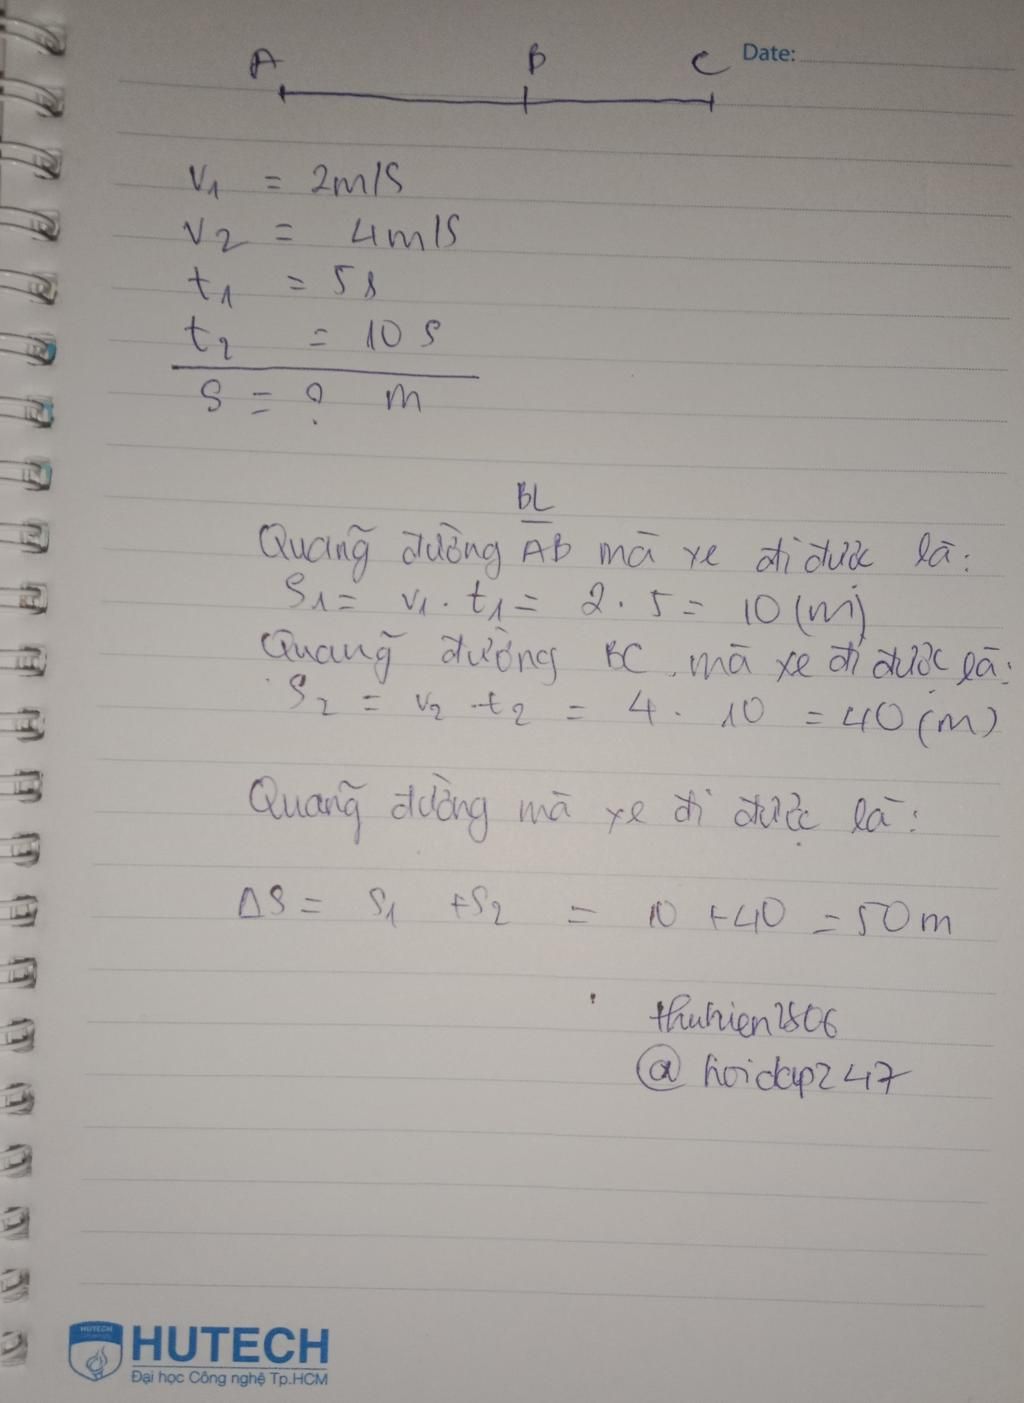 A B C Date:
V1 = 2m/s
V2 = 4m/s
t1 = 5s
t2 = 10 s
S = ? m
BL
Quãng đường AB mà xe đi được là:
S1 = V1 . t1 = 2 . 5 = 10 (m)
Quãng đường BC mà xe đi được là:
S2 = V2 . t2 = 4 . 10 = 40 (m)
Quãng đường mà xe đi được là:
ΔS = S1 + S2 = 10 + 40 = 50m
thuhien2806
@ hoidap247
HUTECH
HUTECH
Đại học Công nghệ Tp.HCM